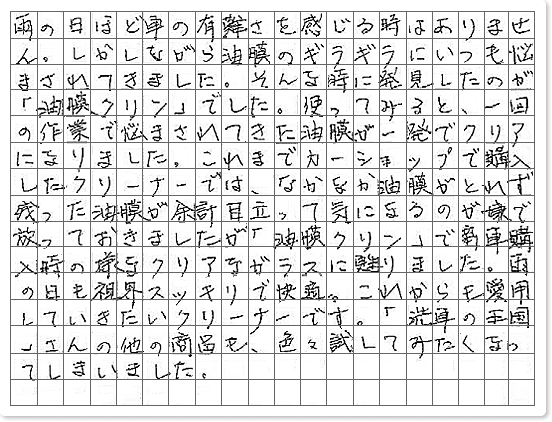 雨の日ほど車の有難さを感じる時はありませ
ん。しかしながら油膜のギラギラにいつも悩
まされてきました。そんな時に発見したのが
「油膜クリン」でした。使ってみると、一回
の作業で悩まされてきた油膜が一発でクリア
になりました。これまでカーショップで購入
したクリーナーでは、なかなか油膜がとれず
残った油膜が余計目立って気になるのが嫌で
放っておきましたが「油膜クリン」で新車購
入時の様なクリアなガラスに甦りました。雨
の日も視界スッキリで快適。これからも愛用
していきたいクリーナーです。「洗車の王国
」さんの他の商品も、色々試してみたくなっ
てしまいました。